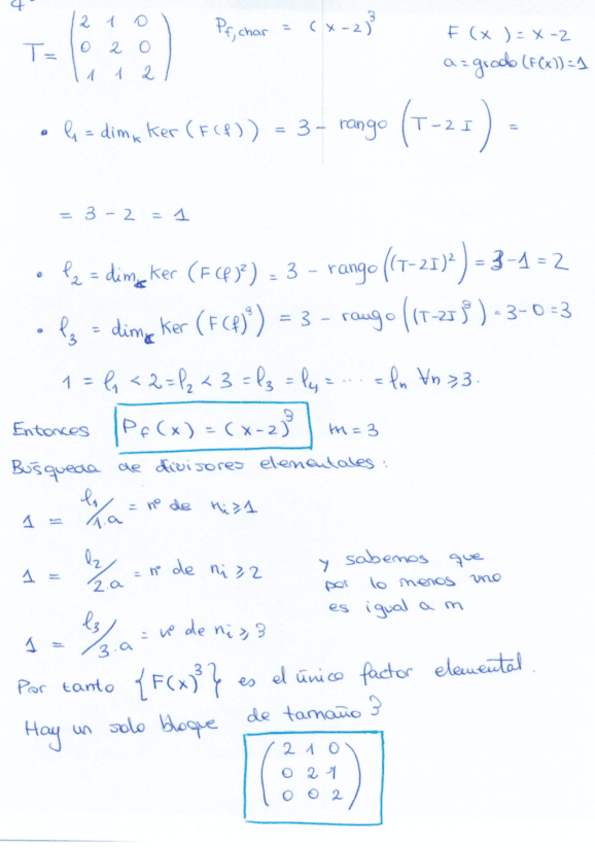 4
T = (2 1 0 / 0 2 0 / 1 1 2) P_f,char = (x-2)^3 F(x) = x-2
a = grado(F(x)) = 1
• l_1 = dim_K Ker(F(f)) = 3 - rango (T-2I) =
= 3 - 2 = 1
• l_2 = dim_K Ker(F(f)^2) = 3 - rango((T-2I)^2) = 3-1 = 2
• l_3 = dim_K Ker(F(f)^3) = 3 - rango((T-2I)^3) = 3-0 = 3
1 = l_1 < 2 = l_2 < 3 = l_3 = l_4 = ... = l_n ∀n ≥ 3.
Entonces P_f(x) = (x-2)^3 m = 3
Búsqueda de divisores elementales:
1 = l_1/1.a = nº de n_i ≥ 1
1 = l_2/2.a = nº de n_i ≥ 2 y sabemos que
por lo menos uno
es igual a m
1 = l_3/3.a = nº de n_i ≥ 3
Por tanto {F(x)^3} es el único factor elemental.
Hay un solo bloque de tamaño 3
(2 1 0 / 0 2 1 / 0 0 2)